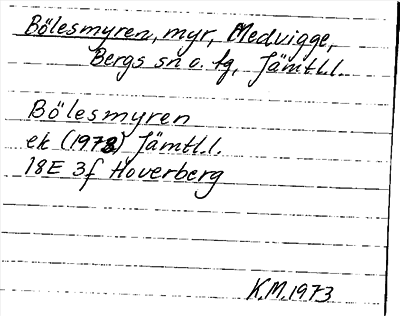 Bölesmyren, myr, Medvigge,
Bergs sn o. tg, Jämtl.l.
Bölesmyren
ek (1972) Jämtl.l.
18E 3f Hoverberg
K.M. 1973